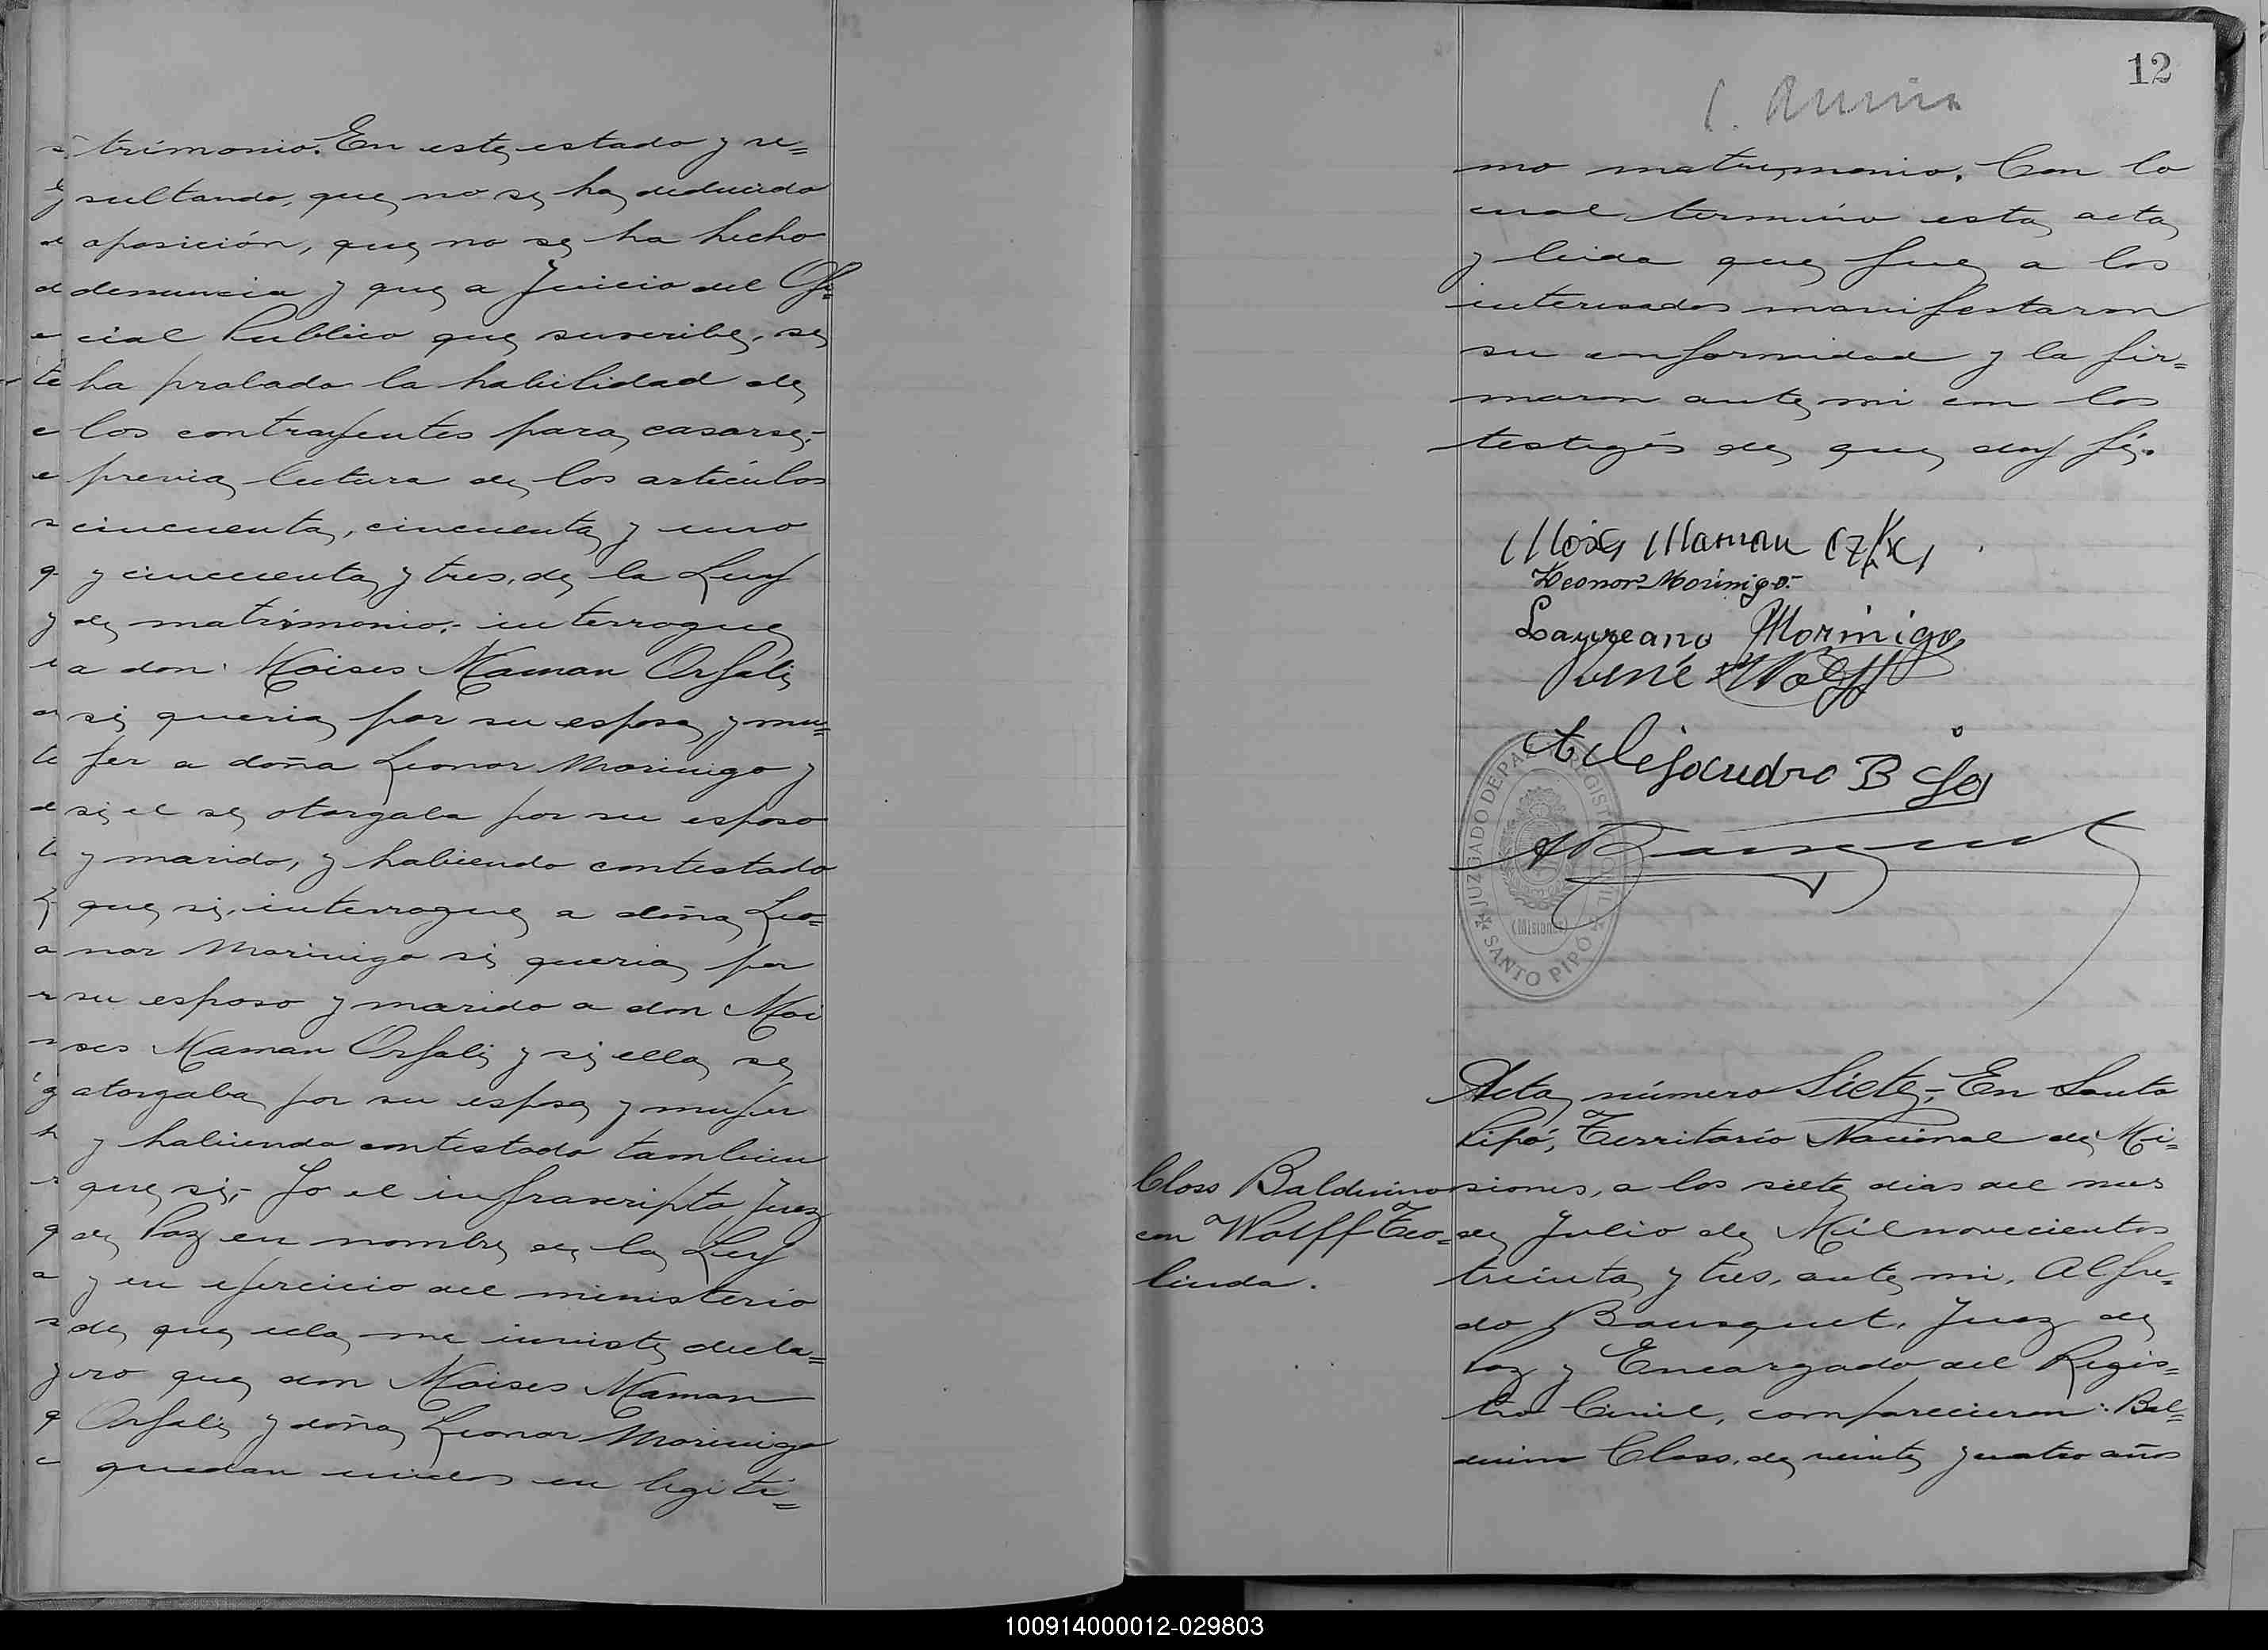 trimonio. En este estado y re=
sultando, que no se ha deducido
oposición, que no se ha hecho
denuncia y que a Juicio del Ofi=
cial Publico que suscribe, se
ha probado la habilidad de
los contrayentes para casarse,-
previa lectura de los artículos
cincuenta, cincuenta y uno
y cincuenta y tres, de la Ley
de matrimonio,- interrogue
a don Moises Maman Orfali
si queria por su esposa y mu=
jer a doña Leonor Morinigo y
si el se otorgaba por su esposo
y marido, y habiendo contestado
que si, interrogue a doña Leo=
nor Morinigo si queria por
su esposo y marido a don Moi
ses Maman Orfali y si ella se
otorgaba por su esposa y mujer
y habiendo contestado tambien
que si,- Yo el infrascripto Juez
de Paz en nombre de la Ley
y en ejercicio del ministerio
de que ella me inviste, decla=
ro que don Moises Maman
Orfali y doña Leonor Morinigo
quedan unidos en legiti=
12
mo matrimonio. Con lo
cual termino esta acta
y leida que fue a los
interesados manifestaron
su conformidad y la fir=
maron ante mi con los
testigos de que doy fé.
Moises Maman
Leonor Morinigo.-
Laureano Morinigo
René Wolff
Alejandro B
JUZGADO DE PAZ Y REGISTRO CIVIL
(Misiones)
SANTO PIPÓ
ABousquet
Acta número Siete,- En Santo
Pipó, Territorio Nacional de Mi=
siones, a los siete dias del mes
de Julio de Mil novecientos
treinta y tres, ante mi, Alfre=
do Bousquet, Juez de
Paz y Encargado del Regis=
tro Civil, comparecieron: Bal=
duino Closs, de veinte y cuatro años
Closs Balduino
con Wolff Teo=
linda.
100914000012-029803